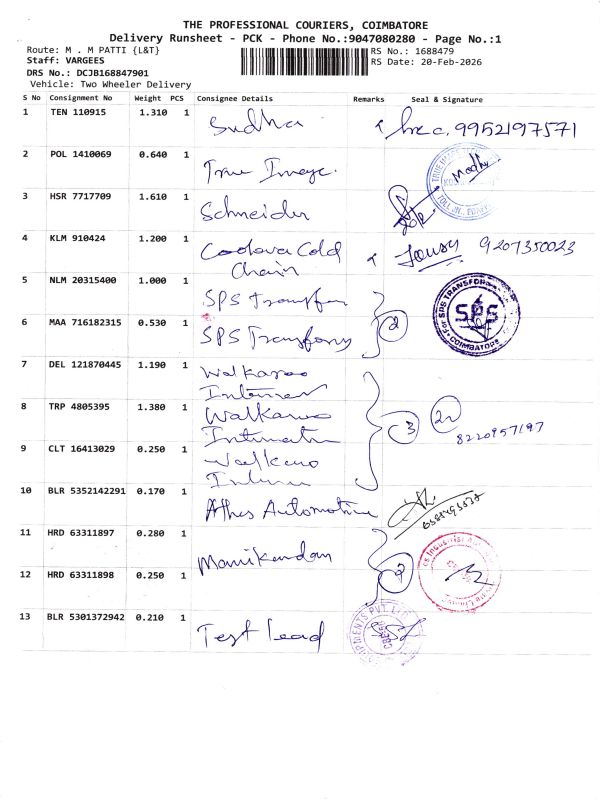 THE PROFESSIONAL COURIERS, COIMBATORE
Delivery Runsheet - PCK - Phone No.:9047080280 - Page No.:1
Route: M . M PATTI {L&T}
RS No.: 1688479
Staff: VARGEES
RS Date: 20-Feb-2026
DRS No.: DCJB168847901
Vehicle: Two Wheeler Delivery
S No Consignment No Weight PCS Consignee Details Remarks Seal & Signature
1 TEN 110915 1.310 1 Sudha 9952197571
2 POL 1410069 0.640 1 True Image. Madhu
3 HSR 7717709 1.610 1 Schneider
4 KLM 910424 1.200 1 Coolova Cold
Chain 9207350023
5 NLM 20315400 1.000 1 SPS Transfer
FOR SPS TRANSFOR
SPS
COIMBATORE
6 MAA 716182315 0.530 1 SPS 2
7 DEL 121870445 1.190 1 Walkaroo
8 TRP 4805395 1.380 1 Walkaroo
3
8220957197
9 CLT 16413029 0.250 1
10 BLR 5352142291 0.170 1 Athes Automotive
11 HRD 63311897 0.280 1 Manikandan
12 HRD 63311898 0.250 1
13 BLR 5301372942 0.210 1 Test Lead